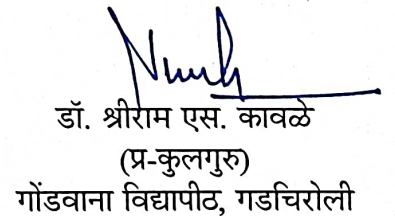 डॉ. श्रीराम एस. कावळे
(प्र-कुलगुरु)
गोंडवाना विद्यापीठ, गडचिरोली